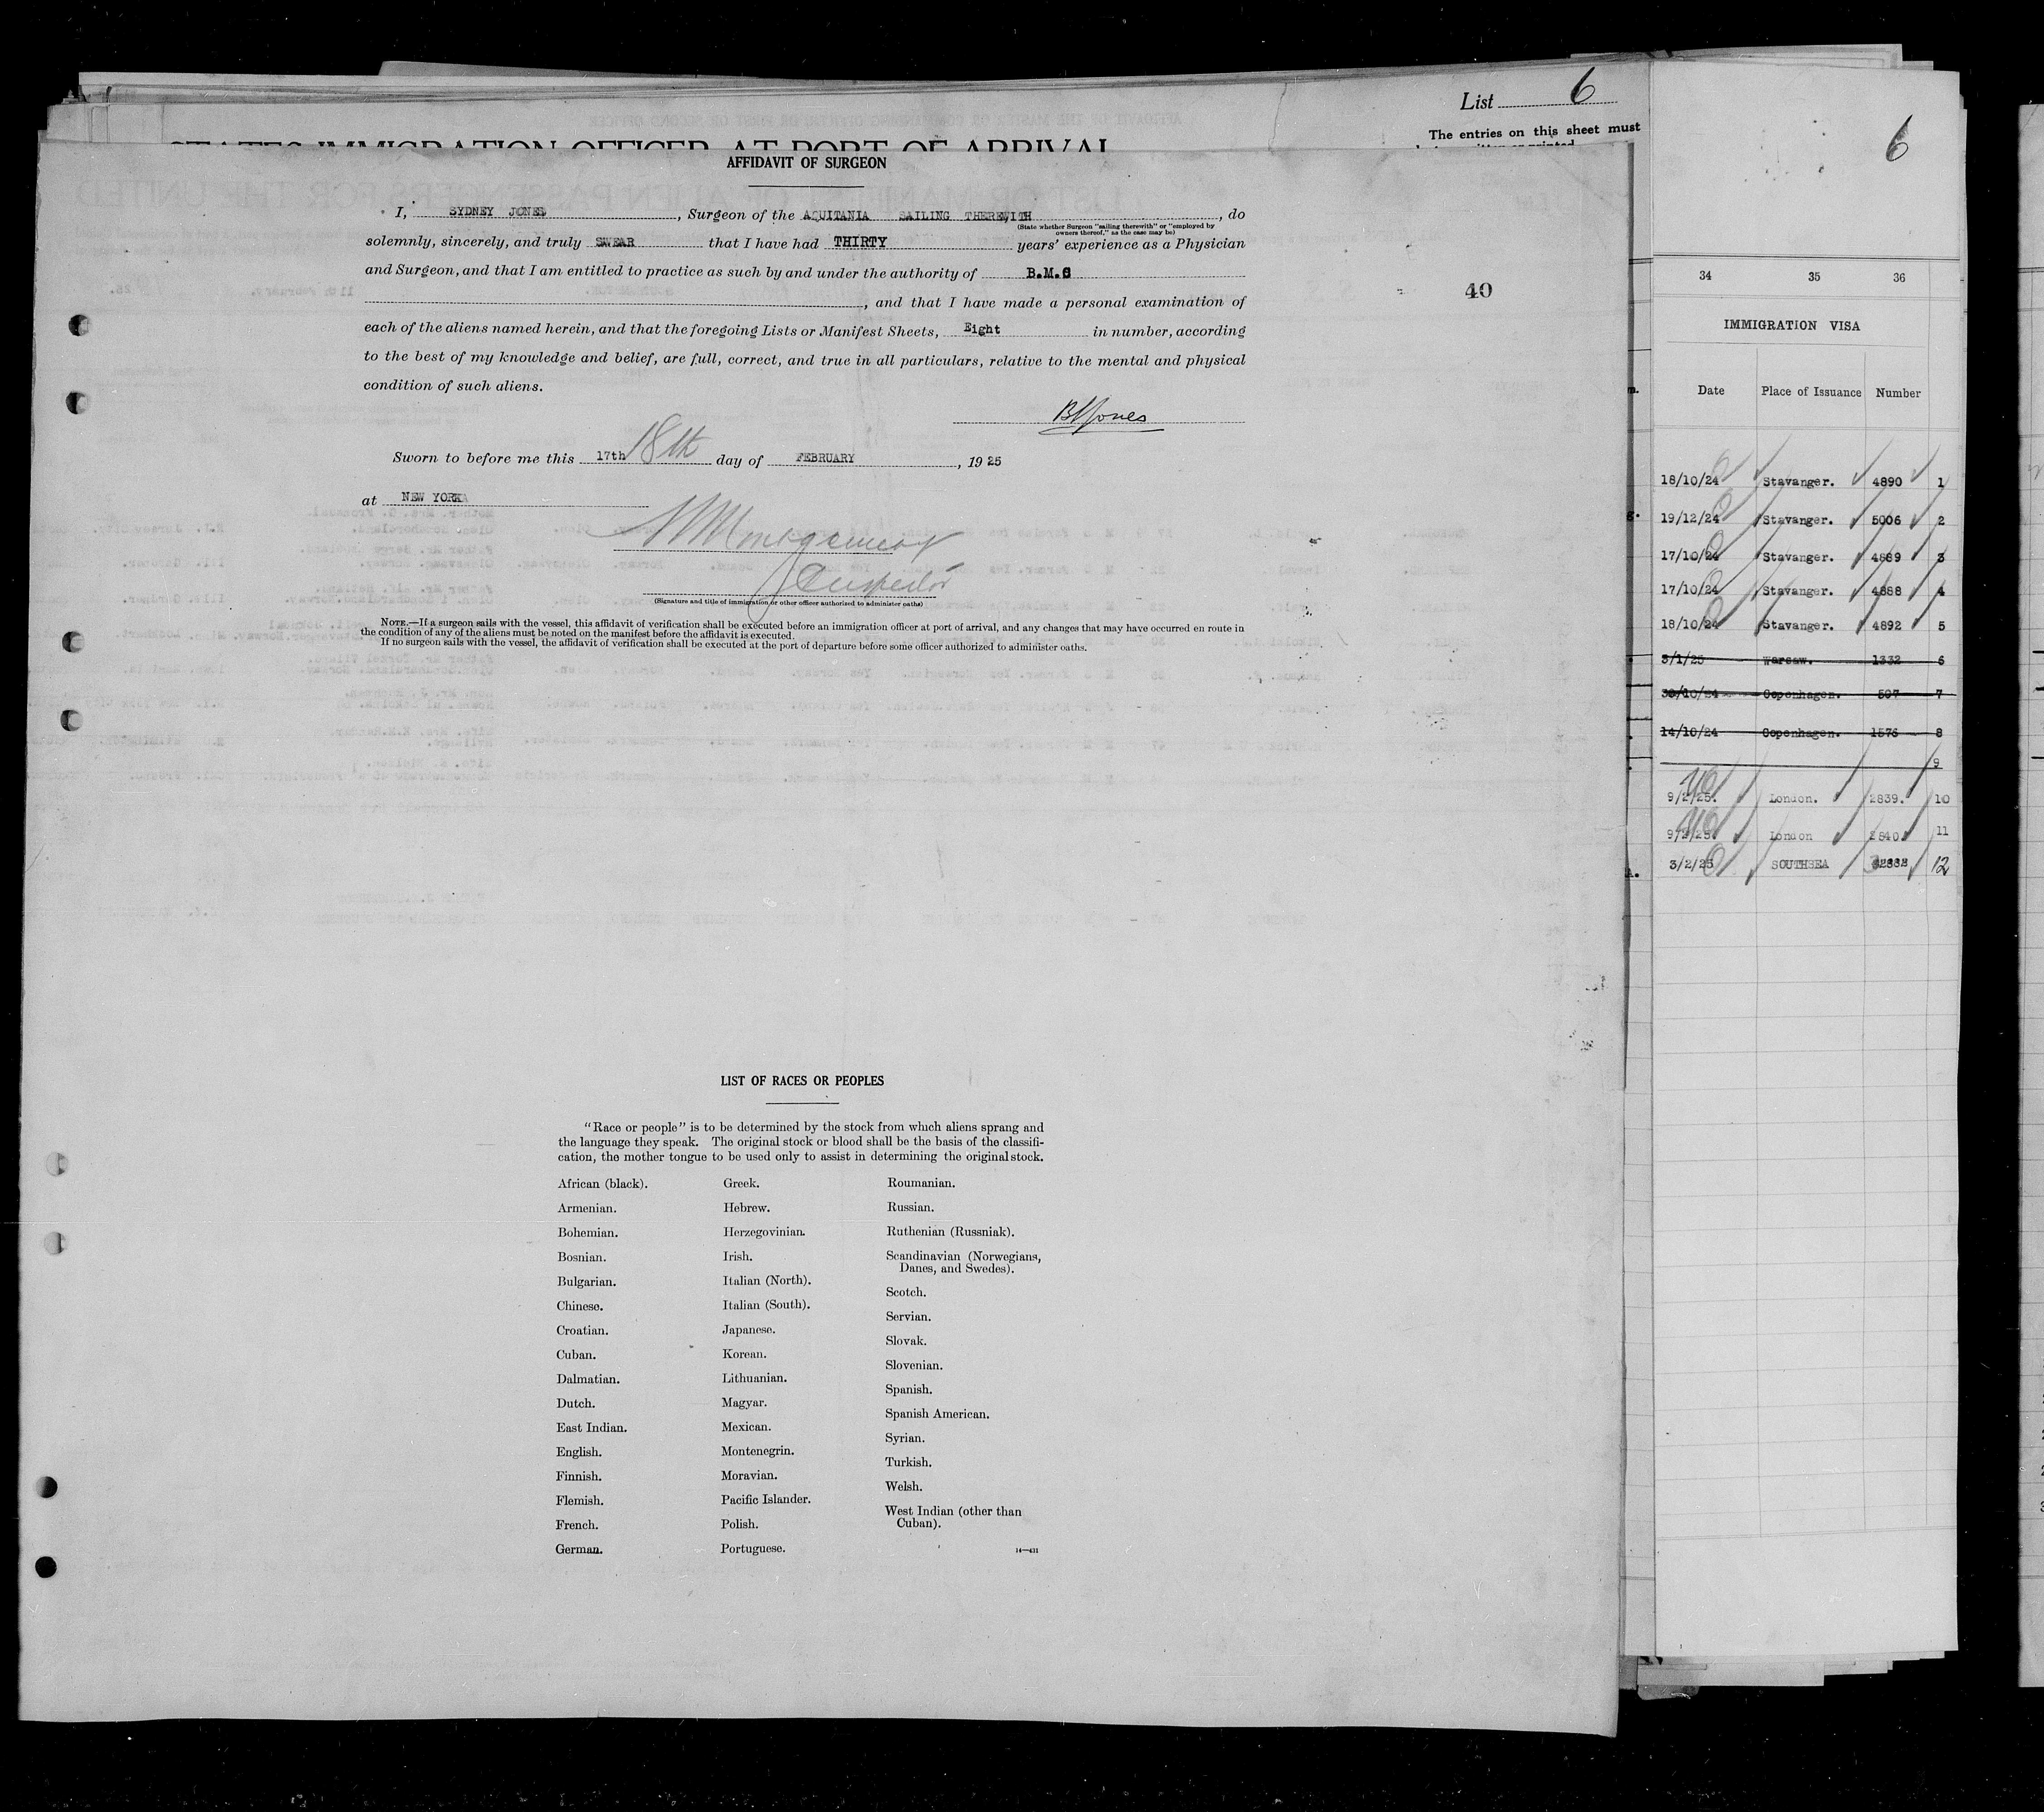 List 6
The entries on this sheet must
STATES IMMIGRATION OFFICER AT PORT OF ARRIVAL
6
AFFIDAVIT OF SURGEON
I, SYDNEY JONES, Surgeon of the AQUITANIA SAILING THEREWITH, do
(State whether Surgeon "sailing therewith" or "employed by
owners thereof," as the case may be)
solemnly, sincerely, and truly SWEAR that I have had THIRTY years' experience as a Physician
and Surgeon, and that I am entitled to practice as such by and under the authority of B.M.C
, and that I have made a personal examination of
each of the aliens named herein, and that the foregoing Lists or Manifest Sheets, Eight in number, according
to the best of my knowledge and belief, are full, correct, and true in all particulars, relative to the mental and physical
condition of such aliens.
40
Jones
Sworn to before me this 17th 18th day of FEBRUARY, 1925
at NEW YORK
Montgomery
Inspector
(Signature and title of immigration or other officer authorized to administer oaths)
NOTE.—If a surgeon sails with the vessel, this affidavit of verification shall be executed before an immigration officer at port of arrival, and any changes that may have occurred en route in
the condition of any of the aliens must be noted on the manifest before the affidavit is executed.
If no surgeon sails with the vessel, the affidavit of verification shall be executed at the port of departure before some officer authorized to administer oaths.
LIST OF RACES OR PEOPLES
"Race or people" is to be determined by the stock from which aliens sprang and
the language they speak. The original stock or blood shall be the basis of the classifi-
cation, the mother tongue to be used only to assist in determining the original stock.
African (black).
Armenian.
Bohemian.
Bosnian.
Bulgarian.
Chinese.
Croatian.
Cuban.
Dalmatian.
Dutch.
East Indian.
English.
Finnish.
Flemish.
French.
German.
Greek.
Hebrew.
Herzegovinian.
Irish.
Italian (North).
Italian (South).
Japanese.
Korean.
Lithuanian.
Magyar.
Mexican.
Montenegrin.
Moravian.
Pacific Islander.
Polish.
Portuguese.
Roumanian.
Russian.
Ruthenian (Russniak).
Scandinavian (Norwegians,
Danes, and Swedes).
Scotch.
Servian.
Slovak.
Slovenian.
Spanish.
Spanish American.
Syrian.
Turkish.
Welsh.
West Indian (other than
Cuban).
14—431
34 35 36
IMMIGRATION VISA
Date Place of Issuance Number
18/10/24 Stavanger. 4890 1
19/12/24 Stavanger. 5006 2
17/10/24 Stavanger. 4889 3
17/10/24 Stavanger. 4888 4
18/10/24 Stavanger. 4892 5
3/1/25 Warsaw. 1332 6
30/10/24 Copenhagen. 507 7
14/10/24 Copenhagen. 1576 8
9
9/2/25. London. 2839. 10
9/2/25. London 2840 11
3/2/25 SOUTHSEA 12